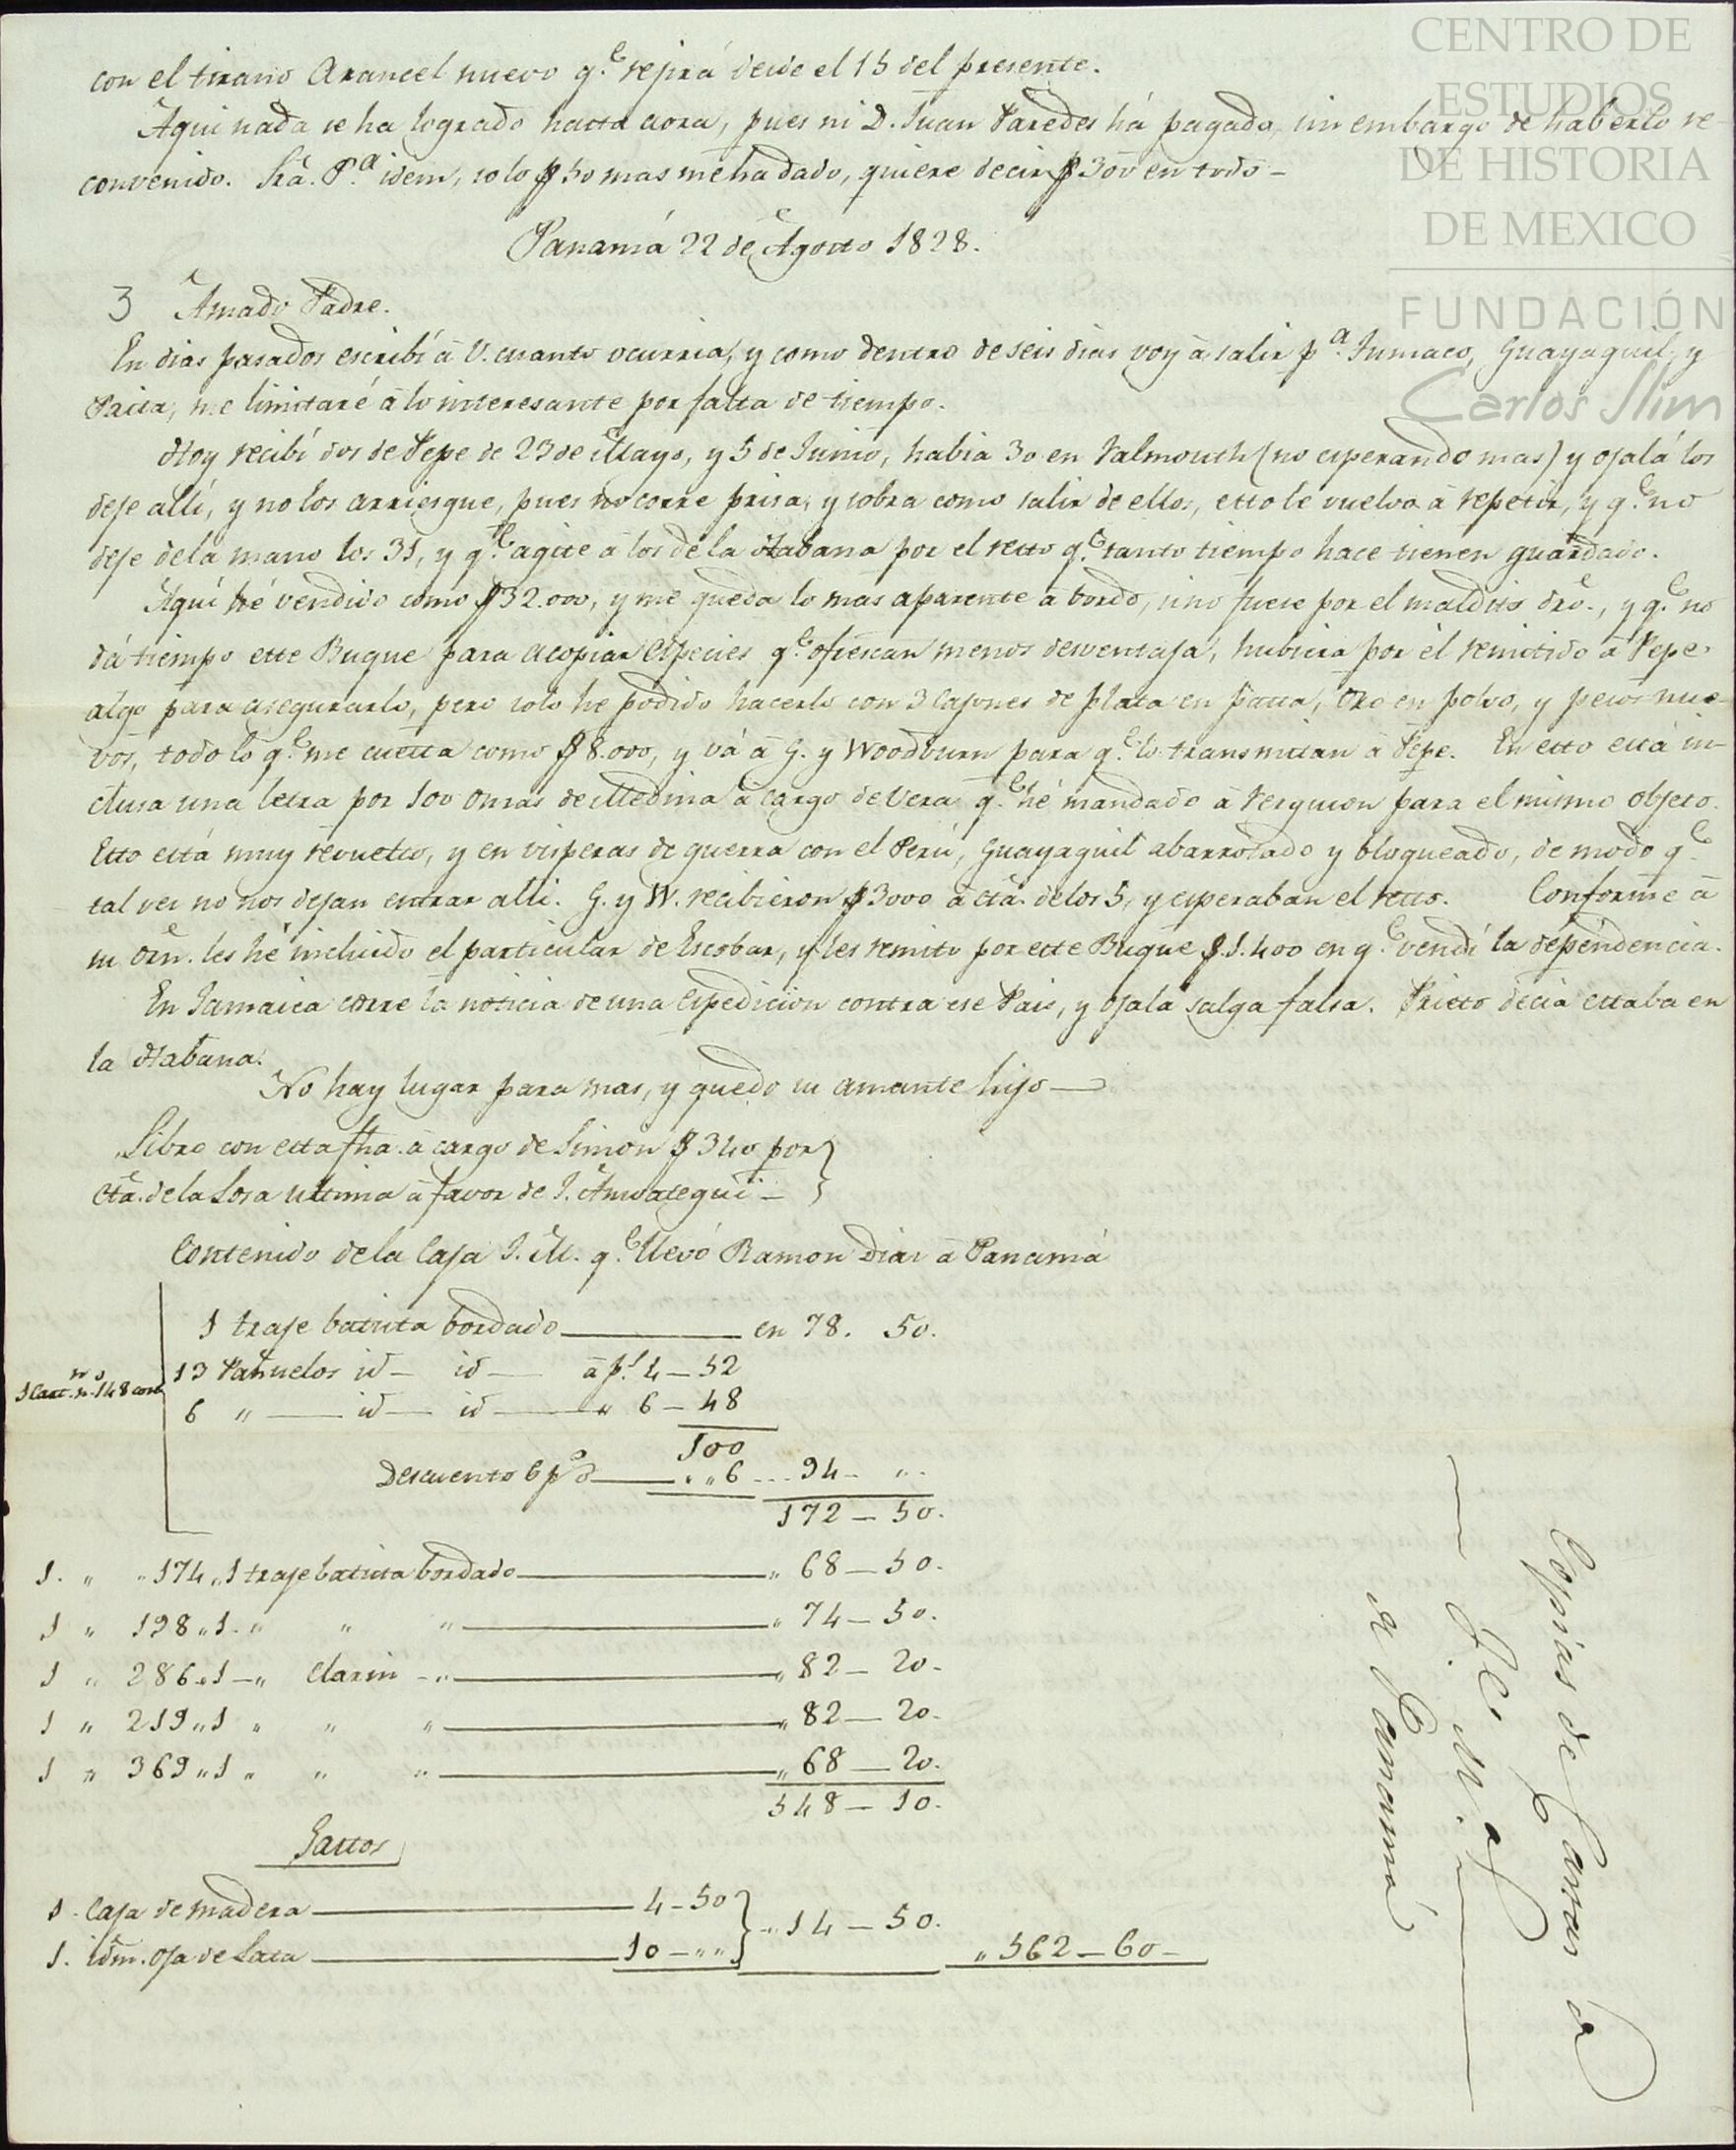 CENTRO DE
ESTUDIOS
DE HISTORIA
DE MEXICO
FUNDACIÓN
Carlos Slim
con el tirano Arancel nuevo q.e rejirá desde el 15 del presente.
Aqui nada se ha logrado hasta aora, pues ni D. Juan Paredes há pagado, sin embargo de haberlo re-
convenido. Sra. P.a idem, solo $ 50 mas me ha dado, quiere decir $ 300 en todo -
Panamá 22 de Agosto 1828.
3 Amado Padre.
En dias pasados escribí á V. cuanto ocurria, y como dentro de seis dias voy á salir p.a Tumaco, Guayaquil, y
Paita, me limitaré á lo interesante por falta de tiempo.
Hoy recibí dos de Pepe de 23 de Mayo, y 5 de Junio, habia 30 en Falmouth (no esperando mas) y ojalá los
deje allí, y no los arriesgue, pues no corre prisa, y sobra como salir de ellos, esto le vuelvo á repetir, y q.e no
deje de la mano los 31, y q.e agite á los de la Habana por el resto q.e tanto tiempo hace tienen guardado.
Aquí hé vendido como $ 32.000, y me queda lo mas aparente á bordo, sino fuese por el maldito dro., y q.e no
dá tiempo este Buque para acopiar especies q.e ofrescan menos desventaja, hubiera por él remitido á Pepe
algo para asegurarlo, pero solo he podido hacerlo con 3 cajones de plata en pasta, oro en polvo, y pesos nue-
vos, todo lo q.e me cuesta como $ 8.000, y vá á G. y Woodburn para q.e lo transmitan á Pepe. En esto está in-
clusa una letra por 100 onzas de Medina á cargo de Vera q.e hé mandado á Ferguson para el mismo objeto.
Esto está muy revuelto, y en visperas de guerra con el Perú, Guayaquil abarrotado y bloqueado, de modo q.e
tal vez no nos dejan entrar alli. G. y W. recibieron $ 3000 á cta. de los 5, y esperaban el resto. Conforme á
su orn. les hé incluido el particular de Escobar, y les remito por este Buque $.1.400 en q.e vendí la dependencia.
En Jamaica corre la noticia de una espedicion contra ese Pais, y ojala salga falsa. Prieto decia estaba en
la Habana.
No hay lugar para mas, y quedo su amante hijo —
Libro con esta fha. á cargo de Simon $ 340 por }
cta. de la Losa ultima á favor de J. Amoategui — }
Contenido de la Caja J. M. q.e llevó Ramon Diaz á Panamá
1 traje batista bordado — en 78. 50.
1 Cart. n.o 148 cont.
13 Pañuelos id — id — á p.s 4 — 52
6 " — id — id — " 6 — 48
100
Descuento 6 p% — " " 6 — 94 — " .
172 — 50.
1. " " 174 " 1 traje batista bordado — " 68 — 50.
1 " 198 " 1. " " " — " 74 — 50.
1 " 286 " 1 — " Clarin — " — " 82 — 20.
1 " 219 " 1 " " " — " 82 — 20.
1 " 369 " 1 " " " — " 68 — 20.
548 — 10.
Gastos
1. Caja de madera — 4 - 50 }
" 14 — 50.
1. idm. oja de Lata — 10 — " " }
" 562 — 60 —
Copias de Cartas de
J. M.
á Panamá